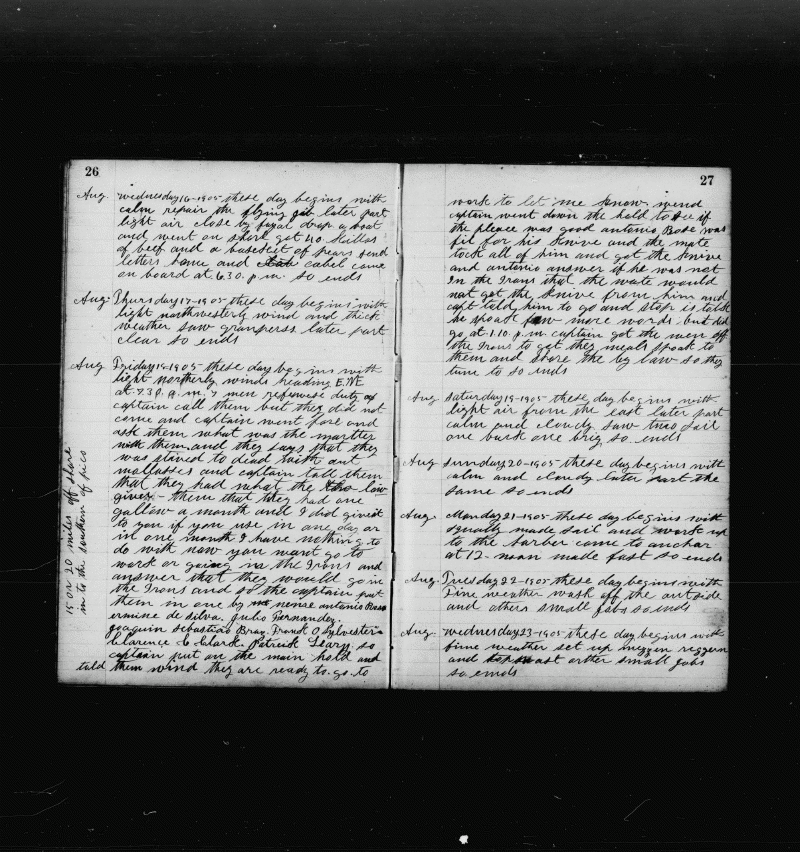 26
Aug. wednesday 16-1905 these day begins with
calm repair the flying gib later part
light air close by fayal drop a boat
and went on shore got 40. Killos
of beef and a basceit of pears send
letters home and cabel came
on board at 6.30. p.m. so ends
Aug. Thursday 17-1905 these day begins with
light northwesterly wind and thick
weather saw granperss later part
clear so ends
Aug Friday 18-1905 these day begins with
light northerly winds heading E.NE
at 7.30. a.m. 7 men refewese duty
captain call them but they did not
come and captain went fore and
ask them what was the martter
with them and they says that they
was stived to dead with out
mollasses and captain tall them
that they had what the law
gives - them that they had one
gallow a month and I did giveit
to you if you use in one day or
in one month I have nothing to
do with now you want go to
work or going in the Irons and
answer that they would go in
the Irons and so the captain put
them in one by nenae antonio Rose
ermine de silva. Julio Fernandez,
Joaquin Sebastiao Bray. Frank O Sylvester
Clarence Patrick Leary, so
captain put on the main hold and
told them wind they are ready to go to
15 or 20 miles off shore
in to the southern of pico
27
work to let me know, wend
captain went down the hold to see if
the pleace was good antonio Rose was
fil for his knive and the mate
tock all of him and got the knive
and antonio answer if he was not
In the Irons that the mate would
not get the knive from him and
capt told him to go and stop is talk
he spoat few more words but did
go at 1.10. p.m captain got the men off
the Irons to get they meals spoat to
them and shore the by law so they
tune to so ends
Aug Saturday 19-1905 these day begins with
light air from the east later part
calm and cloudy saw two sail
one bark one brig so. ends
Aug Sunday 20-1905 these day begins with
calm and cloudy later part the
same so ends
Aug. Monday 21-1905 these day begins with
squally made sail and work up
to the harber came to anchar
at 12- noon made fast so ends
Aug. Tuesday 22-1905 these day begins with
Fine weather wash off the out side
and others small jobs so ends
Aug. wednesday 23-1905 these day begins with
fine weather set up mizzen reggern
and topmast orther small jobs
so ends